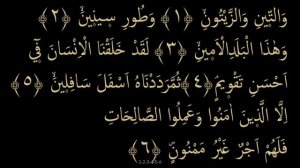 وَالتّ۪ينِ وَالزَّيْتُونِۙ ﴿١﴾ وَطُورِ س۪ين۪ينَۙ ﴿٢﴾
وَهٰذَا الْبَلَدِ الْاَم۪ينِۙ ﴿٣﴾ لَقَدْ خَلَقْنَا الْاِنْسَانَ ف۪ٓي
اَحْسَنِ تَقْو۪يمٍۘ ﴿٤﴾ ثُمَّ رَدَدْنَاهُ اَسْفَلَ سَافِل۪ينَۙ ﴿٥﴾
اِلَّا الَّذ۪ينَ اٰمَنُوا وَعَمِلُوا الصَّالِحَاتِ
فَلَهُمْ اَجْرٌ غَيْرُ مَمْنُونٍۜ ﴿٦﴾